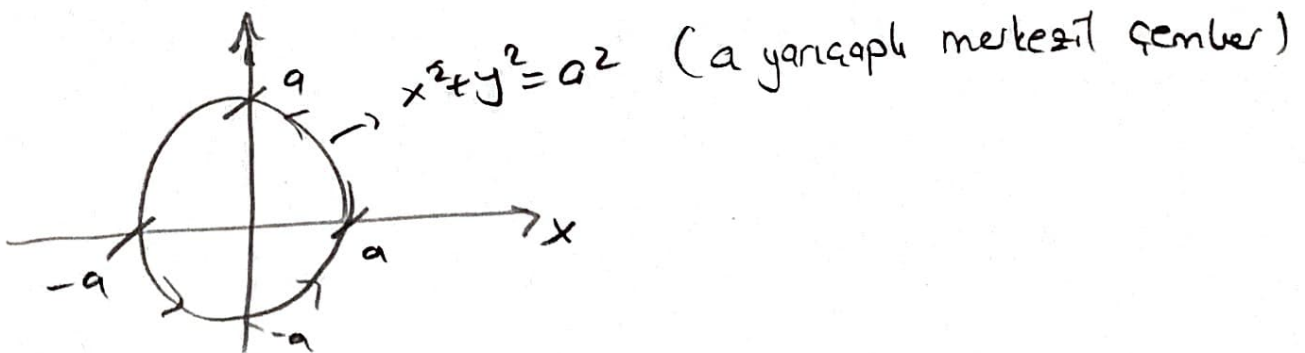 x²+y²=a² (a yarıçaplı merkezil çember)
a
-a
a
x
-a